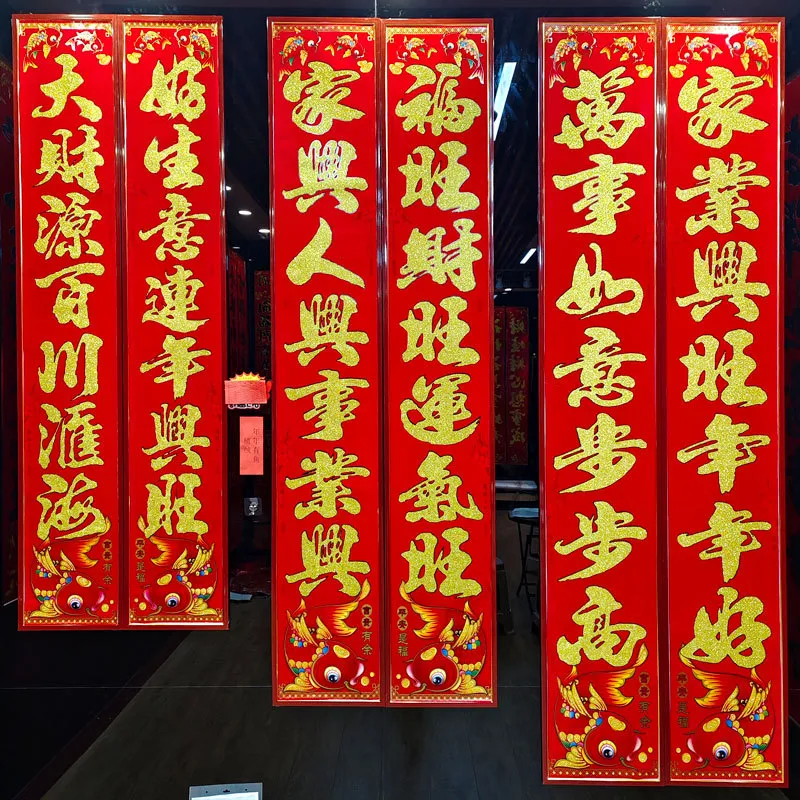 好生意連年興旺
大財源百川滙海
福旺財旺運氣旺
家興人興事業興
家業興旺年年好
萬事如意步步高
平安是福
富貴有余
平安是福
富貴有余
平安是福
富貴有余
年年有魚